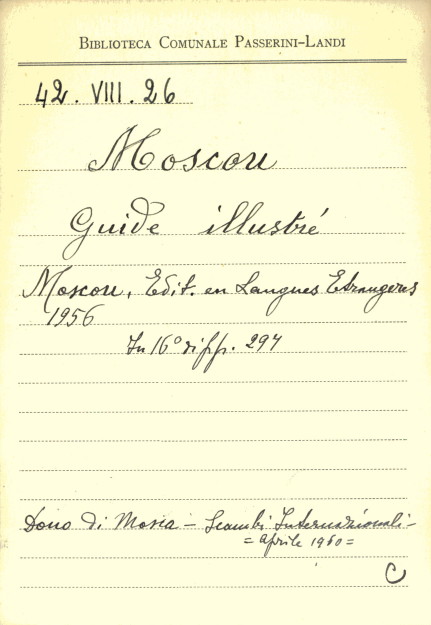 BIBLIOTECA COMUNALE PASSERINI-LANDI
42. VIII. 26
Moscou
Guide illustré
Moscou, Edit. en Langues Etrangeres
1956
In 16° di pp. 294
Dono di Mosca - Scambi Internazionali -
= aprile 1960 =
C